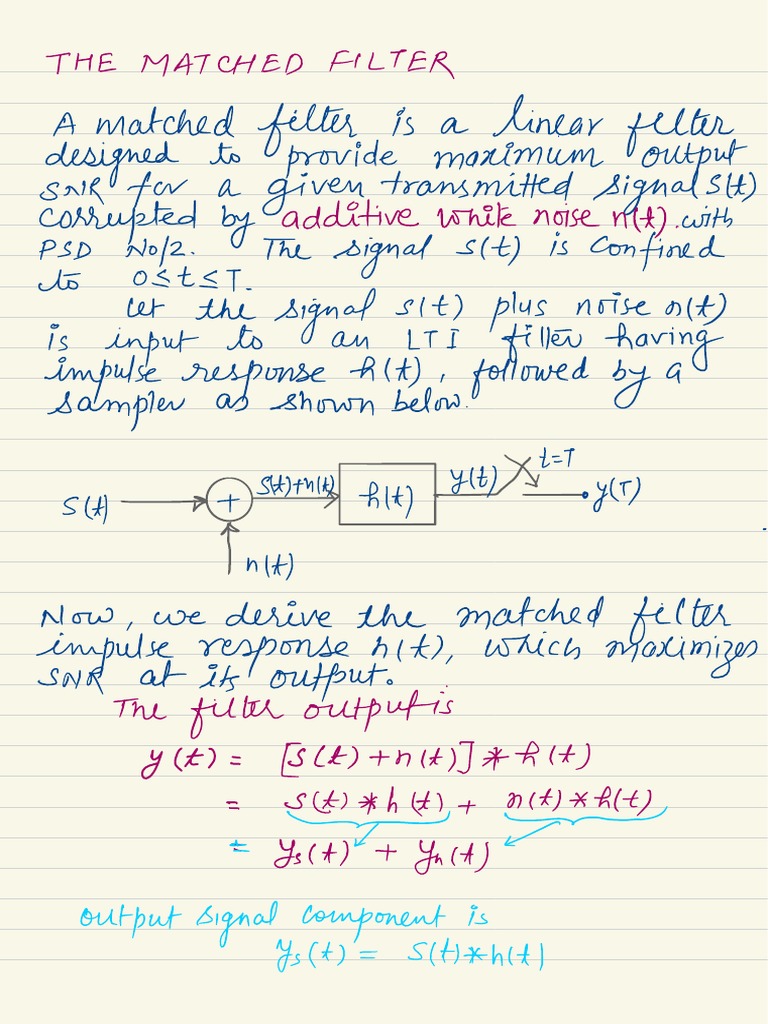 THE MATCHED FILTER
A matched filter is a linear filter
designed to provide maximum output
SNR for a given transmitted signal S(t)
corrupted by additive white noise n(t). with
PSD No/2. The signal s(t) is confined
to 0≤t≤T.
Let the signal s(t) plus noise n(t)
is input to an LTI filter having
impulse response h(t), followed by a
sampler as shown below.
t=T
S(t) + S(t)+n(t) h(t) y(t) y(T)
n(t)
Now, we derive the matched filter
impulse response h(t), which maximizes
SNR at its output.
The filter output is
y(t) = [s(t)+n(t)] * h(t)
= s(t) * h(t) + n(t) * h(t)
= ys(t) + yn(t)
output signal component is
ys(t) = S(t)*h(t)